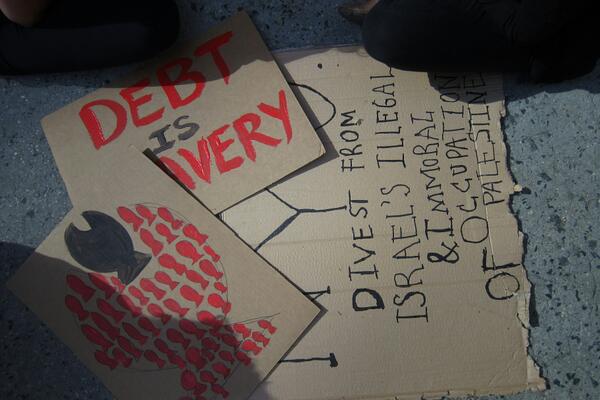 DEBT
IS
AVERY
DIVEST FROM
ISRAEL'S ILLEGAL
& IMMORAL
OCCUPATION
OF PALESTINE